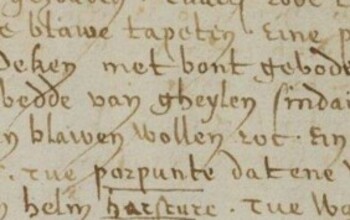 blawe tapetin · Eine
deken met bont gebode
bedde van gheylen sindai
n blawen wollen roc · Ein
· Twe porpunte dat ene
n helm harsture · Twe wo